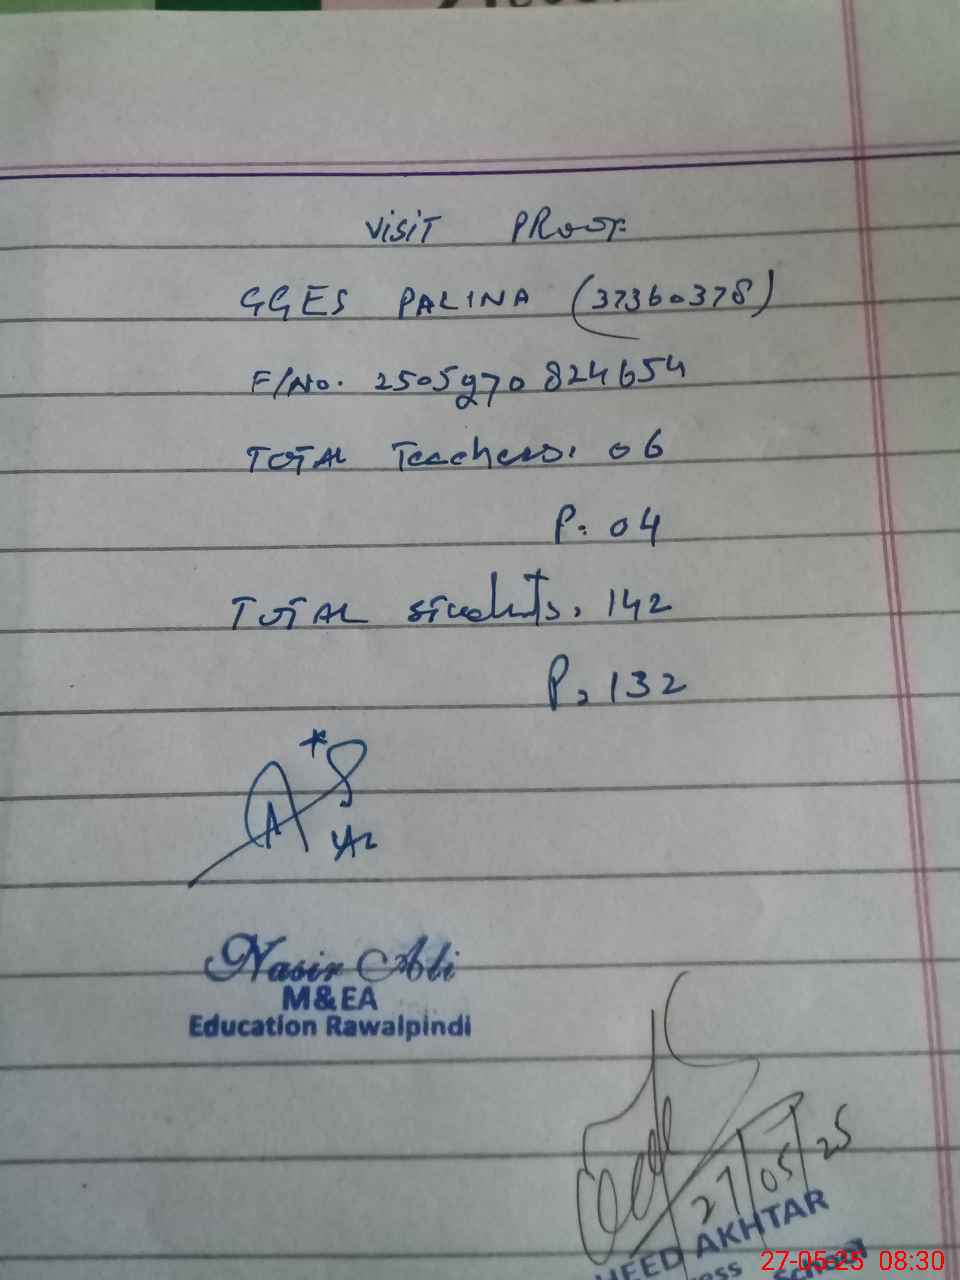 VISIT PROOF
GGES PALINA (37360378)
F/No. 2505970824654
TOTAL Teachers. 06
P. 04
TOTAL students. 142
P. 132
Nasir Ali
M&EA
Education Rawalpindi
27/05/25
HEED AKHTAR
ess School
27-05-25 08:30